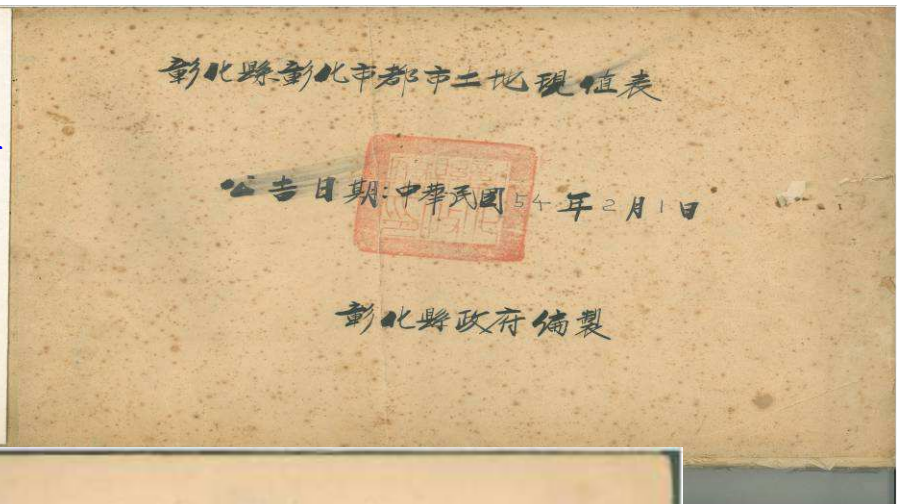 彰化縣彰化市都市土地現值表
公告日期:中華民國54年2月1日
彰化縣政府編製